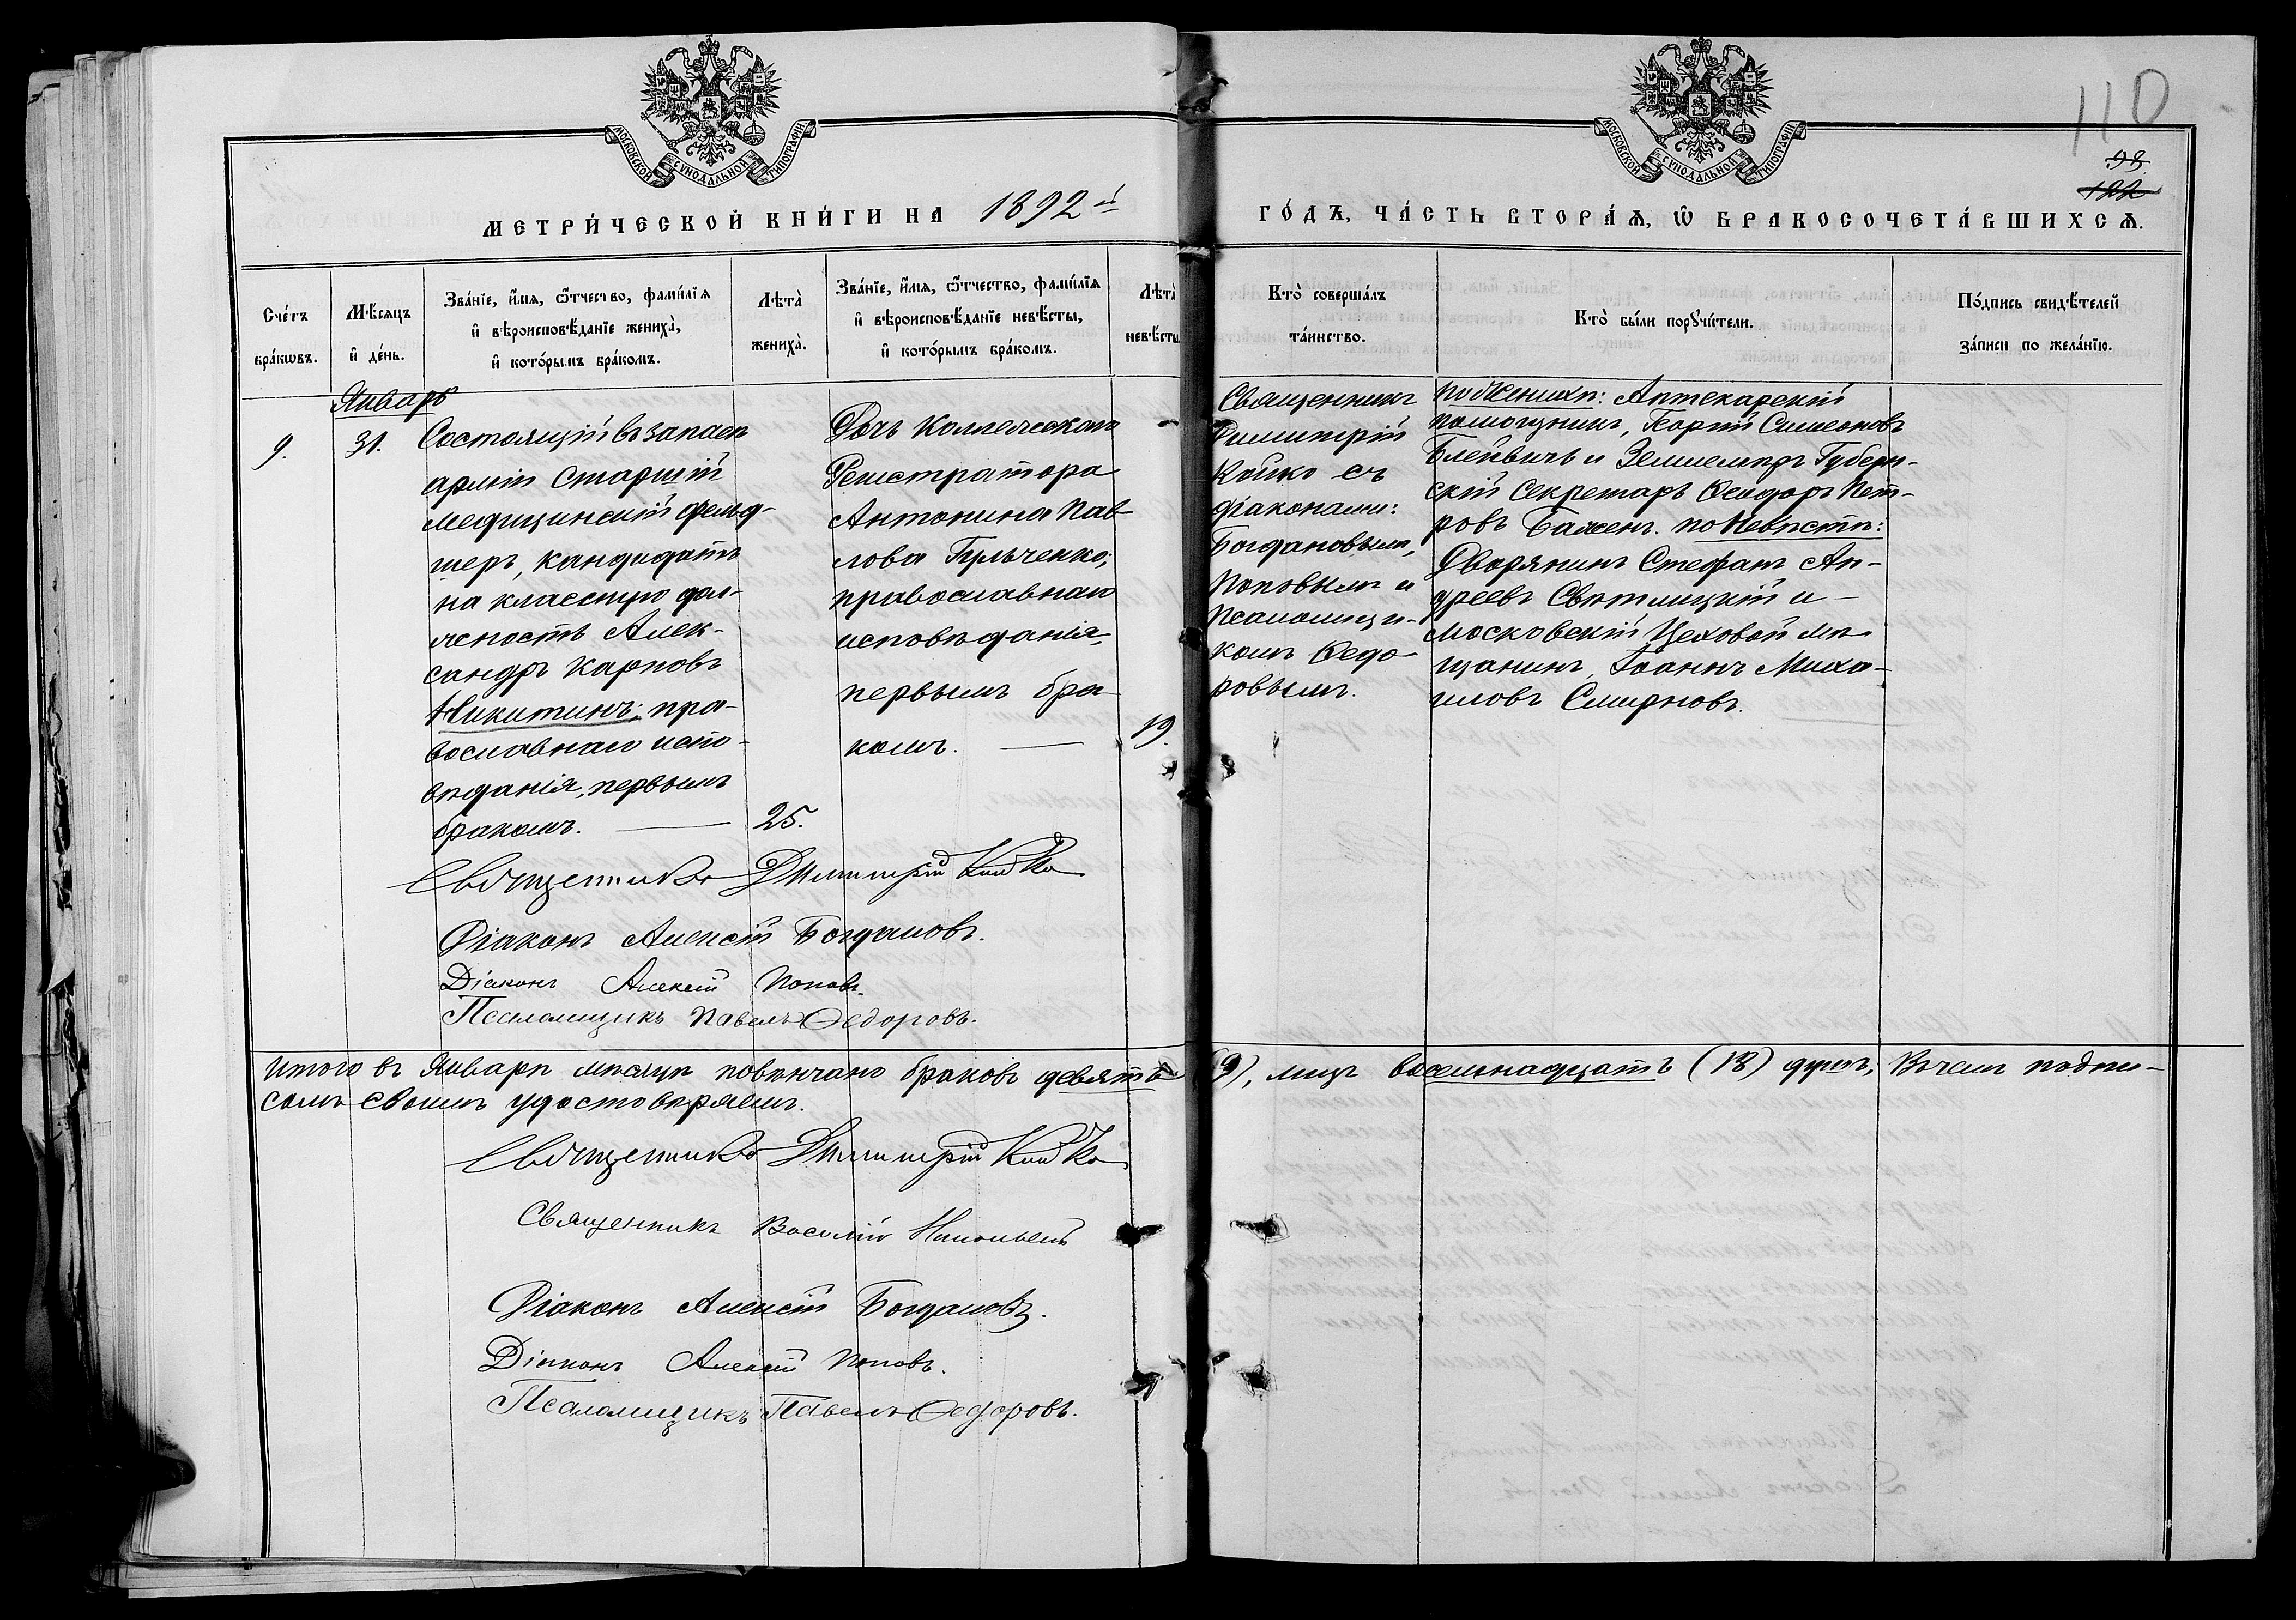 110
93.
122
МОСКОВСКОЙ СѴНОДАЛЬНОЙ ТИПОГРАФІИ
МОСКОВСКОЙ СѴНОДАЛЬНОЙ ТИПОГРАФІИ
МЕТРИ́ЧЕСКОЙ КНИ́ГИ НА 1892й
ГО́ДЪ, ЧА́СТЬ ВТОРА́Ѧ, Ѡ҆ БРАКОСОЧЕТА́ВШИХСѦ.
Сче́тъ
бра́кѡвъ.
Мѣ́сѧцъ
и҆ де́нь.
Зва́нїе, и҆́мѧ, ѻ҆́тчество, фами́лїѧ
и҆ вѣроисповѣ́данїе жениха̀,
и҆ кото́рымъ бра́комъ.
Лѣта̀
жениха̀.
Зва́нїе, и҆́мѧ, ѻ҆́тчество, фами́лїѧ
и҆ вѣроисповѣ́данїе невѣ́сты,
и҆ кото́рымъ бра́комъ.
Лѣта̀
невѣ́сты
Кто̀ соверша́лъ
та́инство.
Кто̀ бы́ли порꙋчи́тели.
По́дпись свидѣ́телей
за́писи по жела́нїю.
Январь
9.
31.
Состоящій въ запасѣ
арміи Старшій
медицинскій фельд-
шеръ, кандидатъ
на классную дол-
жность Алек-
сандръ Карповъ
Никитинъ; пра-
вославнаго испо-
вѣданія, первымъ
бракомъ.
25.
Дочь Коллежскаго
Регистратора
Антонина Пав
лова
православнаго
исповѣданія,
первымъ бра
комъ.
19.
Священникъ
Димитрій
Койко съ
діаконами:
Богдановымъ,
Поповымъ и
Псаломщи-
комъ Ѳедо-
ровымъ.
По Женихѣ: Аптекарскій
помощникъ, Георгій Симеоновъ
и Землемѣръ Губерн-
скій Секретарь Ѳеодоръ Пет-
ровъ Бажен. по Невѣстѣ:
Дворянинъ Стефанъ Ан-
дреевъ Свѣтлицкій и
Московскій Цеховой мѣ-
щанинъ, Іоаннъ Миха-
иловъ Смирновъ.
Священникъ Димитрій Койко
Діаконъ Алексій Богдановъ.
Діаконъ Алексій Поповъ.
Псаломщикъ Павелъ Ѳедоровъ.
Итого въ Январѣ мѣсяцѣ повѣнчано браковъ девять (9), лицъ восемнадцать (18) душъ, Въ чемъ подпи-
сомъ своимъ удостовѣряемъ.
Священникъ Димитрій Койко
Священникъ Василій
Діаконъ Алексій Богдановъ.
Діаконъ Алексій Поповъ.
Псаломщикъ Павелъ Ѳедоровъ.